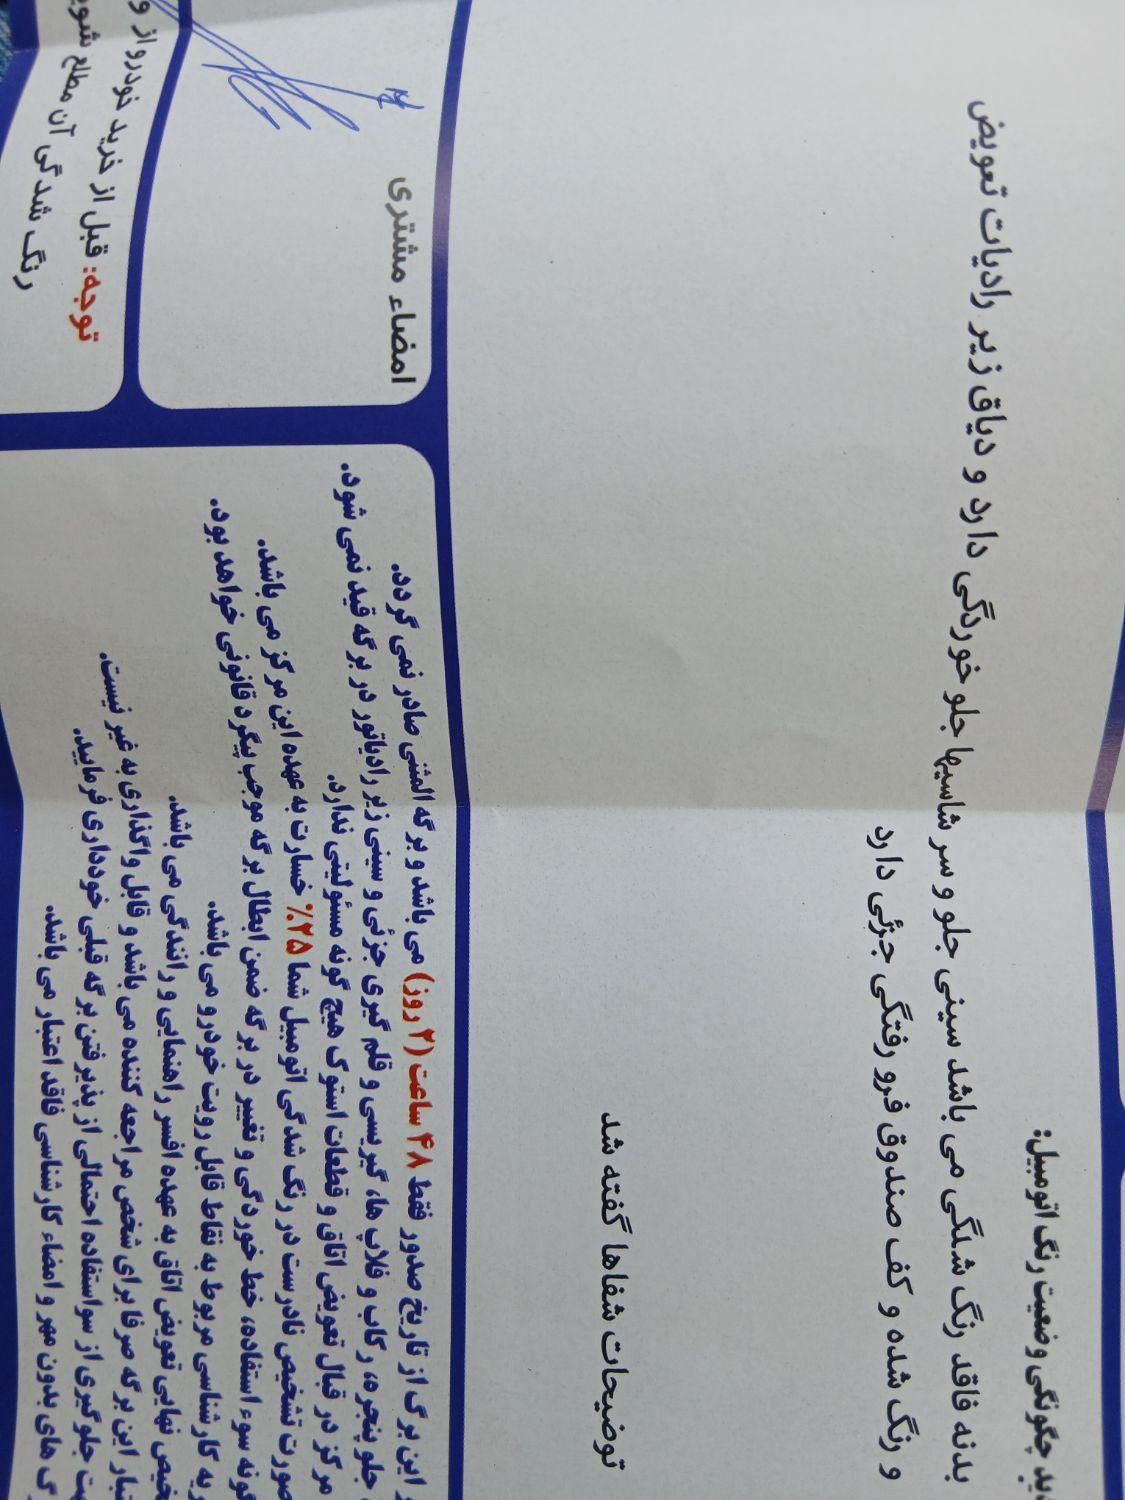 چگونگی وضعیت رنگ اتومبیل:
بدنه فاقد رنگ شدگی می باشد سینی جلو و سر شاسیها جلو خوردگی دارد و دیاق زیر رادیات تعویض
و رنگ شده و کف صندوق فرو رفتگی جزئی دارد
توضیحات شفاها گفته شد
این برگ از تاریخ صدور فقط ۴۸ ساعت (۲ روز) می باشد و برگه المثنی صادر نمی گردد.
جلو پنجره، رکاب و فلاپ ها، گیریسی و قلم گیری جزئی و سینی زیر رادیاتور در برگه قید نمی شود.
مرکز در قبال تعویض اتاق و قطعات استوک هیچ گونه مسئولیتی ندارد.
صورت تشخیص نادرست در رنگ شدگی اتومبیل شما ۲۵٪ خسارت به عهده این مرکز می باشد.
گونه سوء استفاده، خط خوردگی و تغییر در برگه ضمن ابطال برگه موجب پیگرد قانونی خواهد بود.
کارشناسی مربوط به نقاط قابل رویت خودرو می باشد.
نهایی تعویض اتاق به عهده افسر راهنمایی و رانندگی می باشد.
این برگه صرفا برای شخص مراجعه کننده می باشد و قابل واگذاری به غیر نیست.
جلوگیری از سواستفاده احتمالی از پذیرفتن برگه قبلی خودداری فرمایید.
های بدون مهر و امضاء کارشناسی فاقد اعتبار می باشد.
امضاء مشتری
توجه: قبل از خرید خودرو از
رنگ شدگی آن مطلع